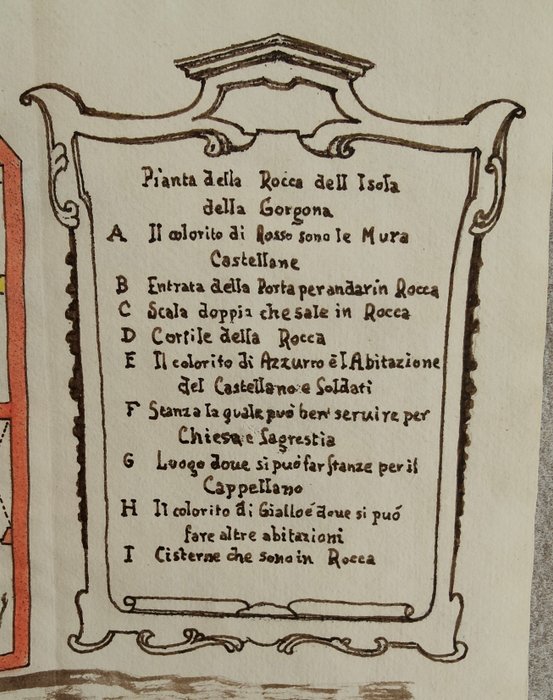 Pianta della Rocca dell Isola
della Gorgona
A Il colorito di Rosso sono le Mura
Castellane
B Entrata della Porta per andar in Rocca
C Scala doppia che sale in Rocca
D Cortile della Rocca
E Il colorito di Azzurro è l Abitazione
del Castellano e Soldati
F Stanza la quale può ben seruire per
Chiesa e Sagrestia
G Luogo doue si può far stanze per il
Cappellano
H Il colorito di Giallo é doue si può
fare altre abitazioni
I Cisterne che sono in Rocca